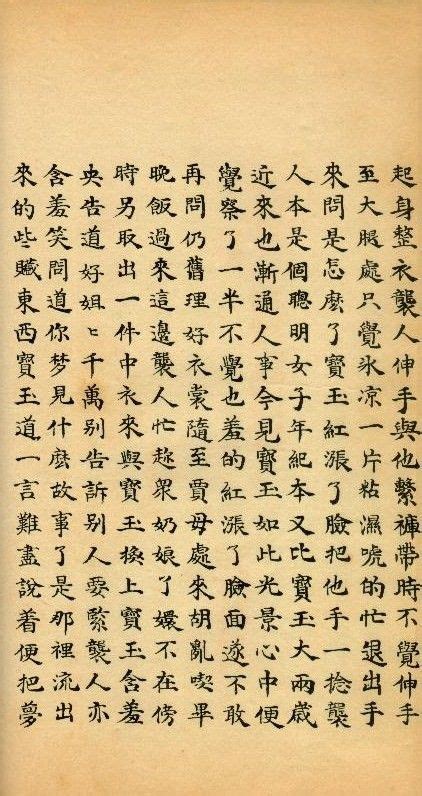 起身整衣襲人伸手與他繫褲帶時不覺伸手
至大腿處只覺氷凉一片粘濕唬的忙退出手
來問是怎麽了寶玉紅漲了臉把他手一捻襲
人本是個聰明女子年紀本又比寶玉大兩歲
近來也漸通人事今見寶玉如此光景心中便
覺察了一半不覺也羞的紅漲了臉面遂不敢
再問仍舊理好衣裳隨至賈母處來胡亂喫畢
晚飯過來這邊襲人忙趂衆奶娘了嬛不在傍
時另取出一件中衣來與寶玉換上寶玉含羞
央告道好姐〻千萬別告訴別人要緊襲人亦
含羞笑問道你梦見什麽故事了是那裡流出
來的些贓東西寶玉道一言難盡說着便把夢